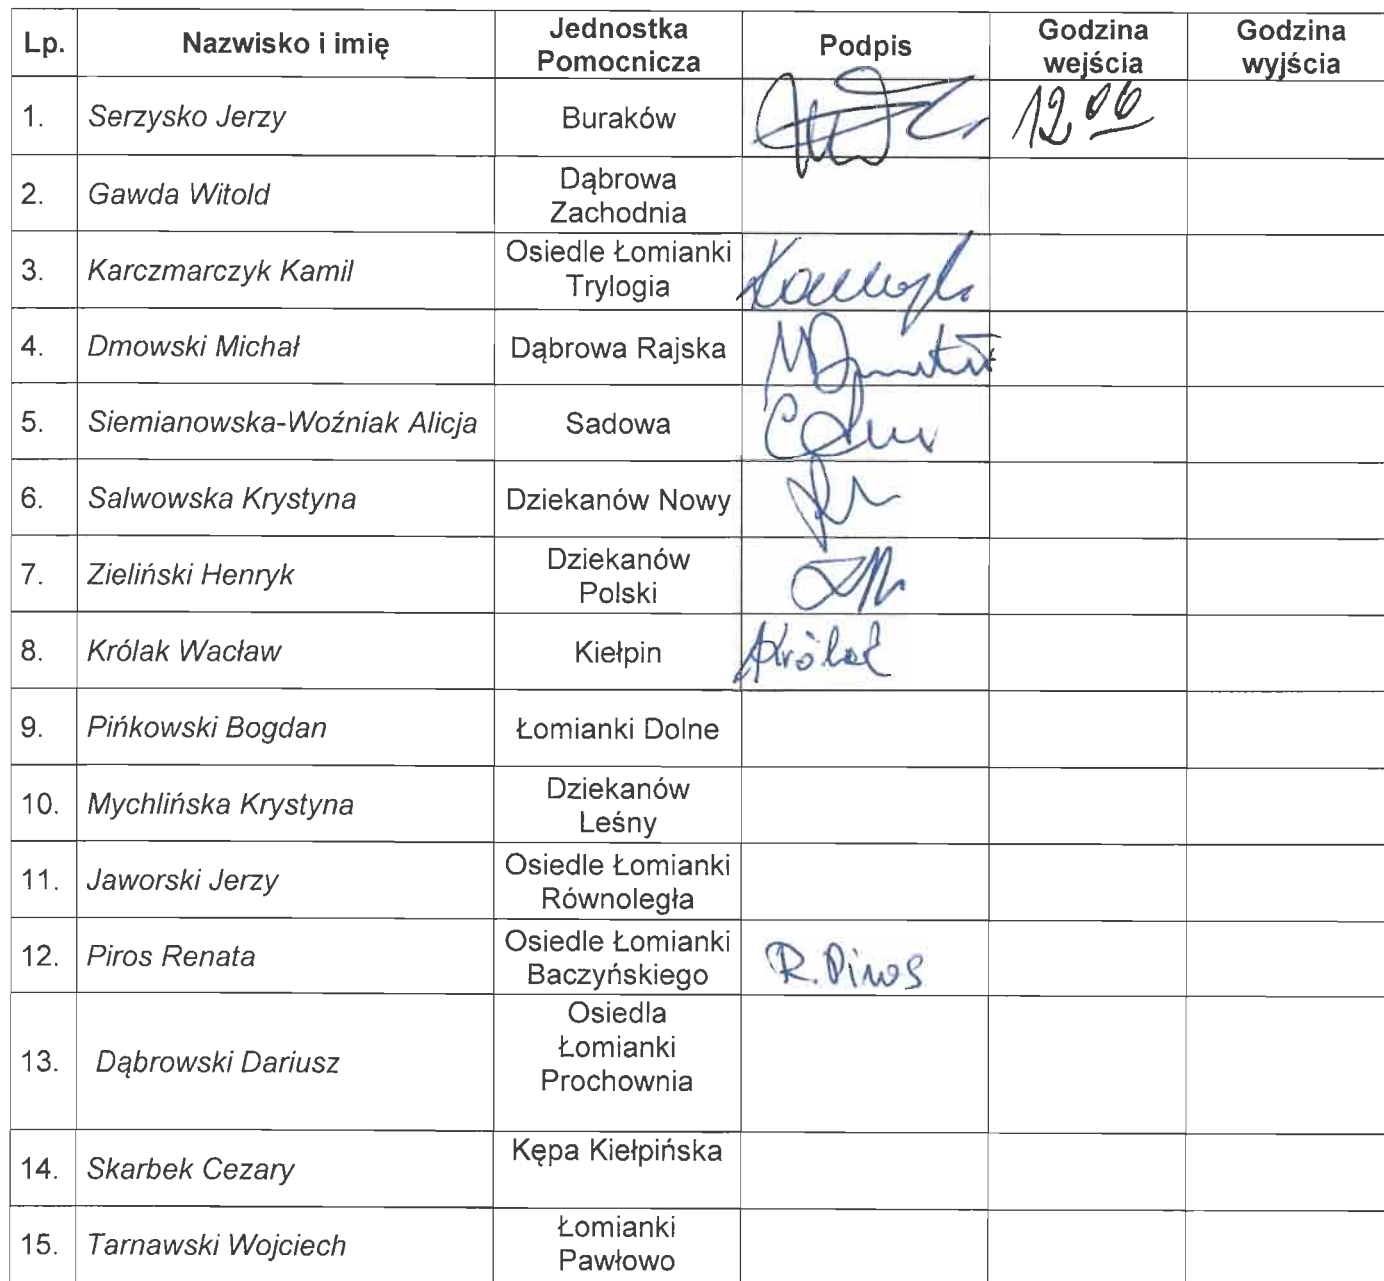 Lp. Nazwisko i imię Jednostka Pomocnicza Podpis Godzina wejścia Godzina wyjścia
1. Serzysko Jerzy Buraków 12 06
2. Gawda Witold Dąbrowa Zachodnia
3. Karczmarczyk Kamil Osiedle Łomianki Trylogia
4. Dmowski Michał Dąbrowa Rajska
5. Siemianowska-Woźniak Alicja Sadowa
6. Salwowska Krystyna Dziekanów Nowy
7. Zieliński Henryk Dziekanów Polski
8. Królak Wacław Kiełpin Królak
9. Pińkowski Bogdan Łomianki Dolne
10. Mychlińska Krystyna Dziekanów Leśny
11. Jaworski Jerzy Osiedle Łomianki Równoległa
12. Piros Renata Osiedle Łomianki Baczyńskiego R. Piros
13. Dąbrowski Dariusz Osiedla Łomianki Prochownia
14. Skarbek Cezary Kępa Kiełpińska
15. Tarnawski Wojciech Łomianki Pawłowo